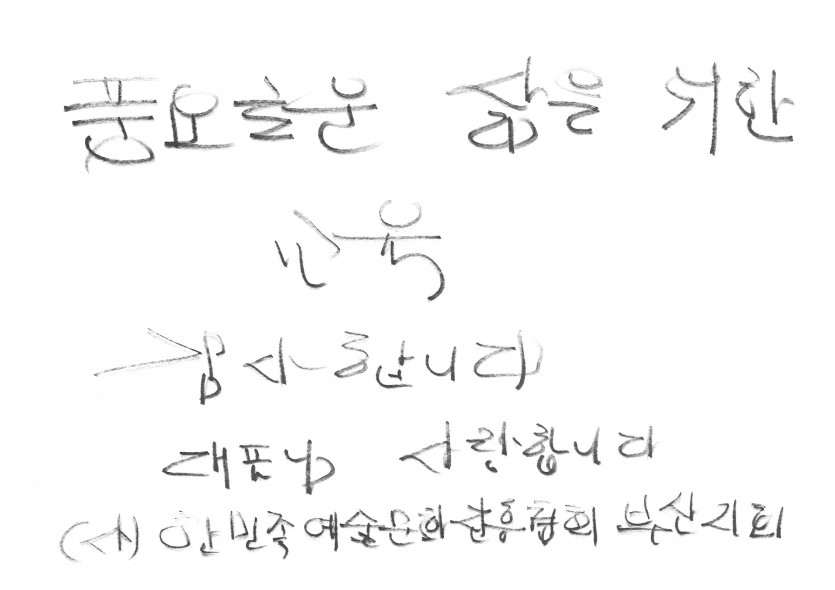 풍요로운 삶을 위한
감사합니다
대표님 사랑합니다
(사) 한민족예술문화진흥협회 부산지회